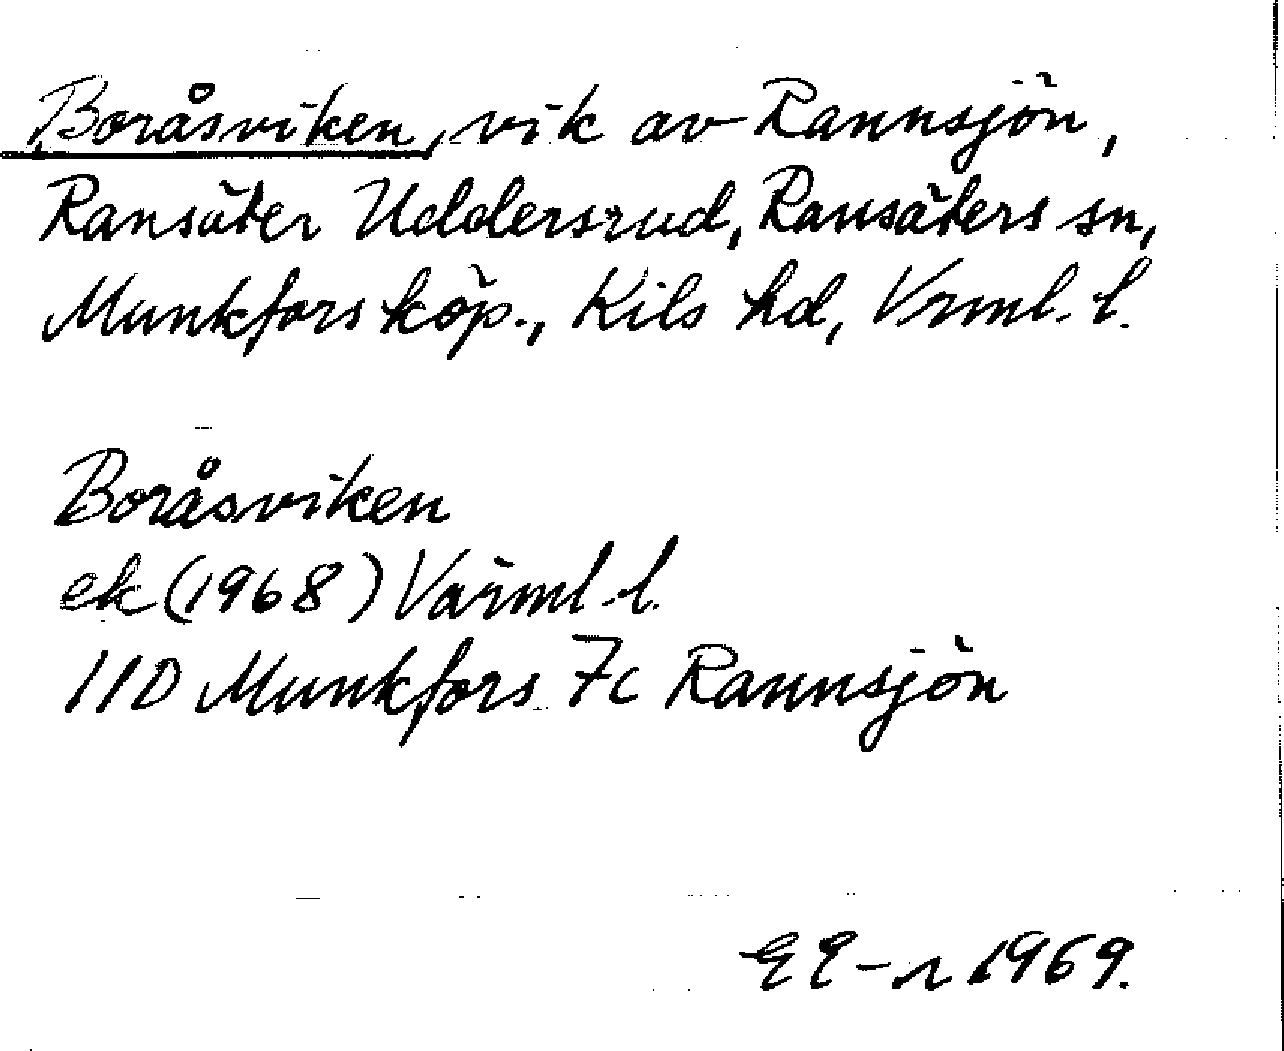 Boråsviken, vik av Rannsjön,
Ransäter Uddersrud, Ransäters sn,
Munkfors köp., Kils hd, Vrml. l.
Boråsviken
ek (1968) Värml. l.
11D Munkfors 7c Rannsjön
EE-n 1969.